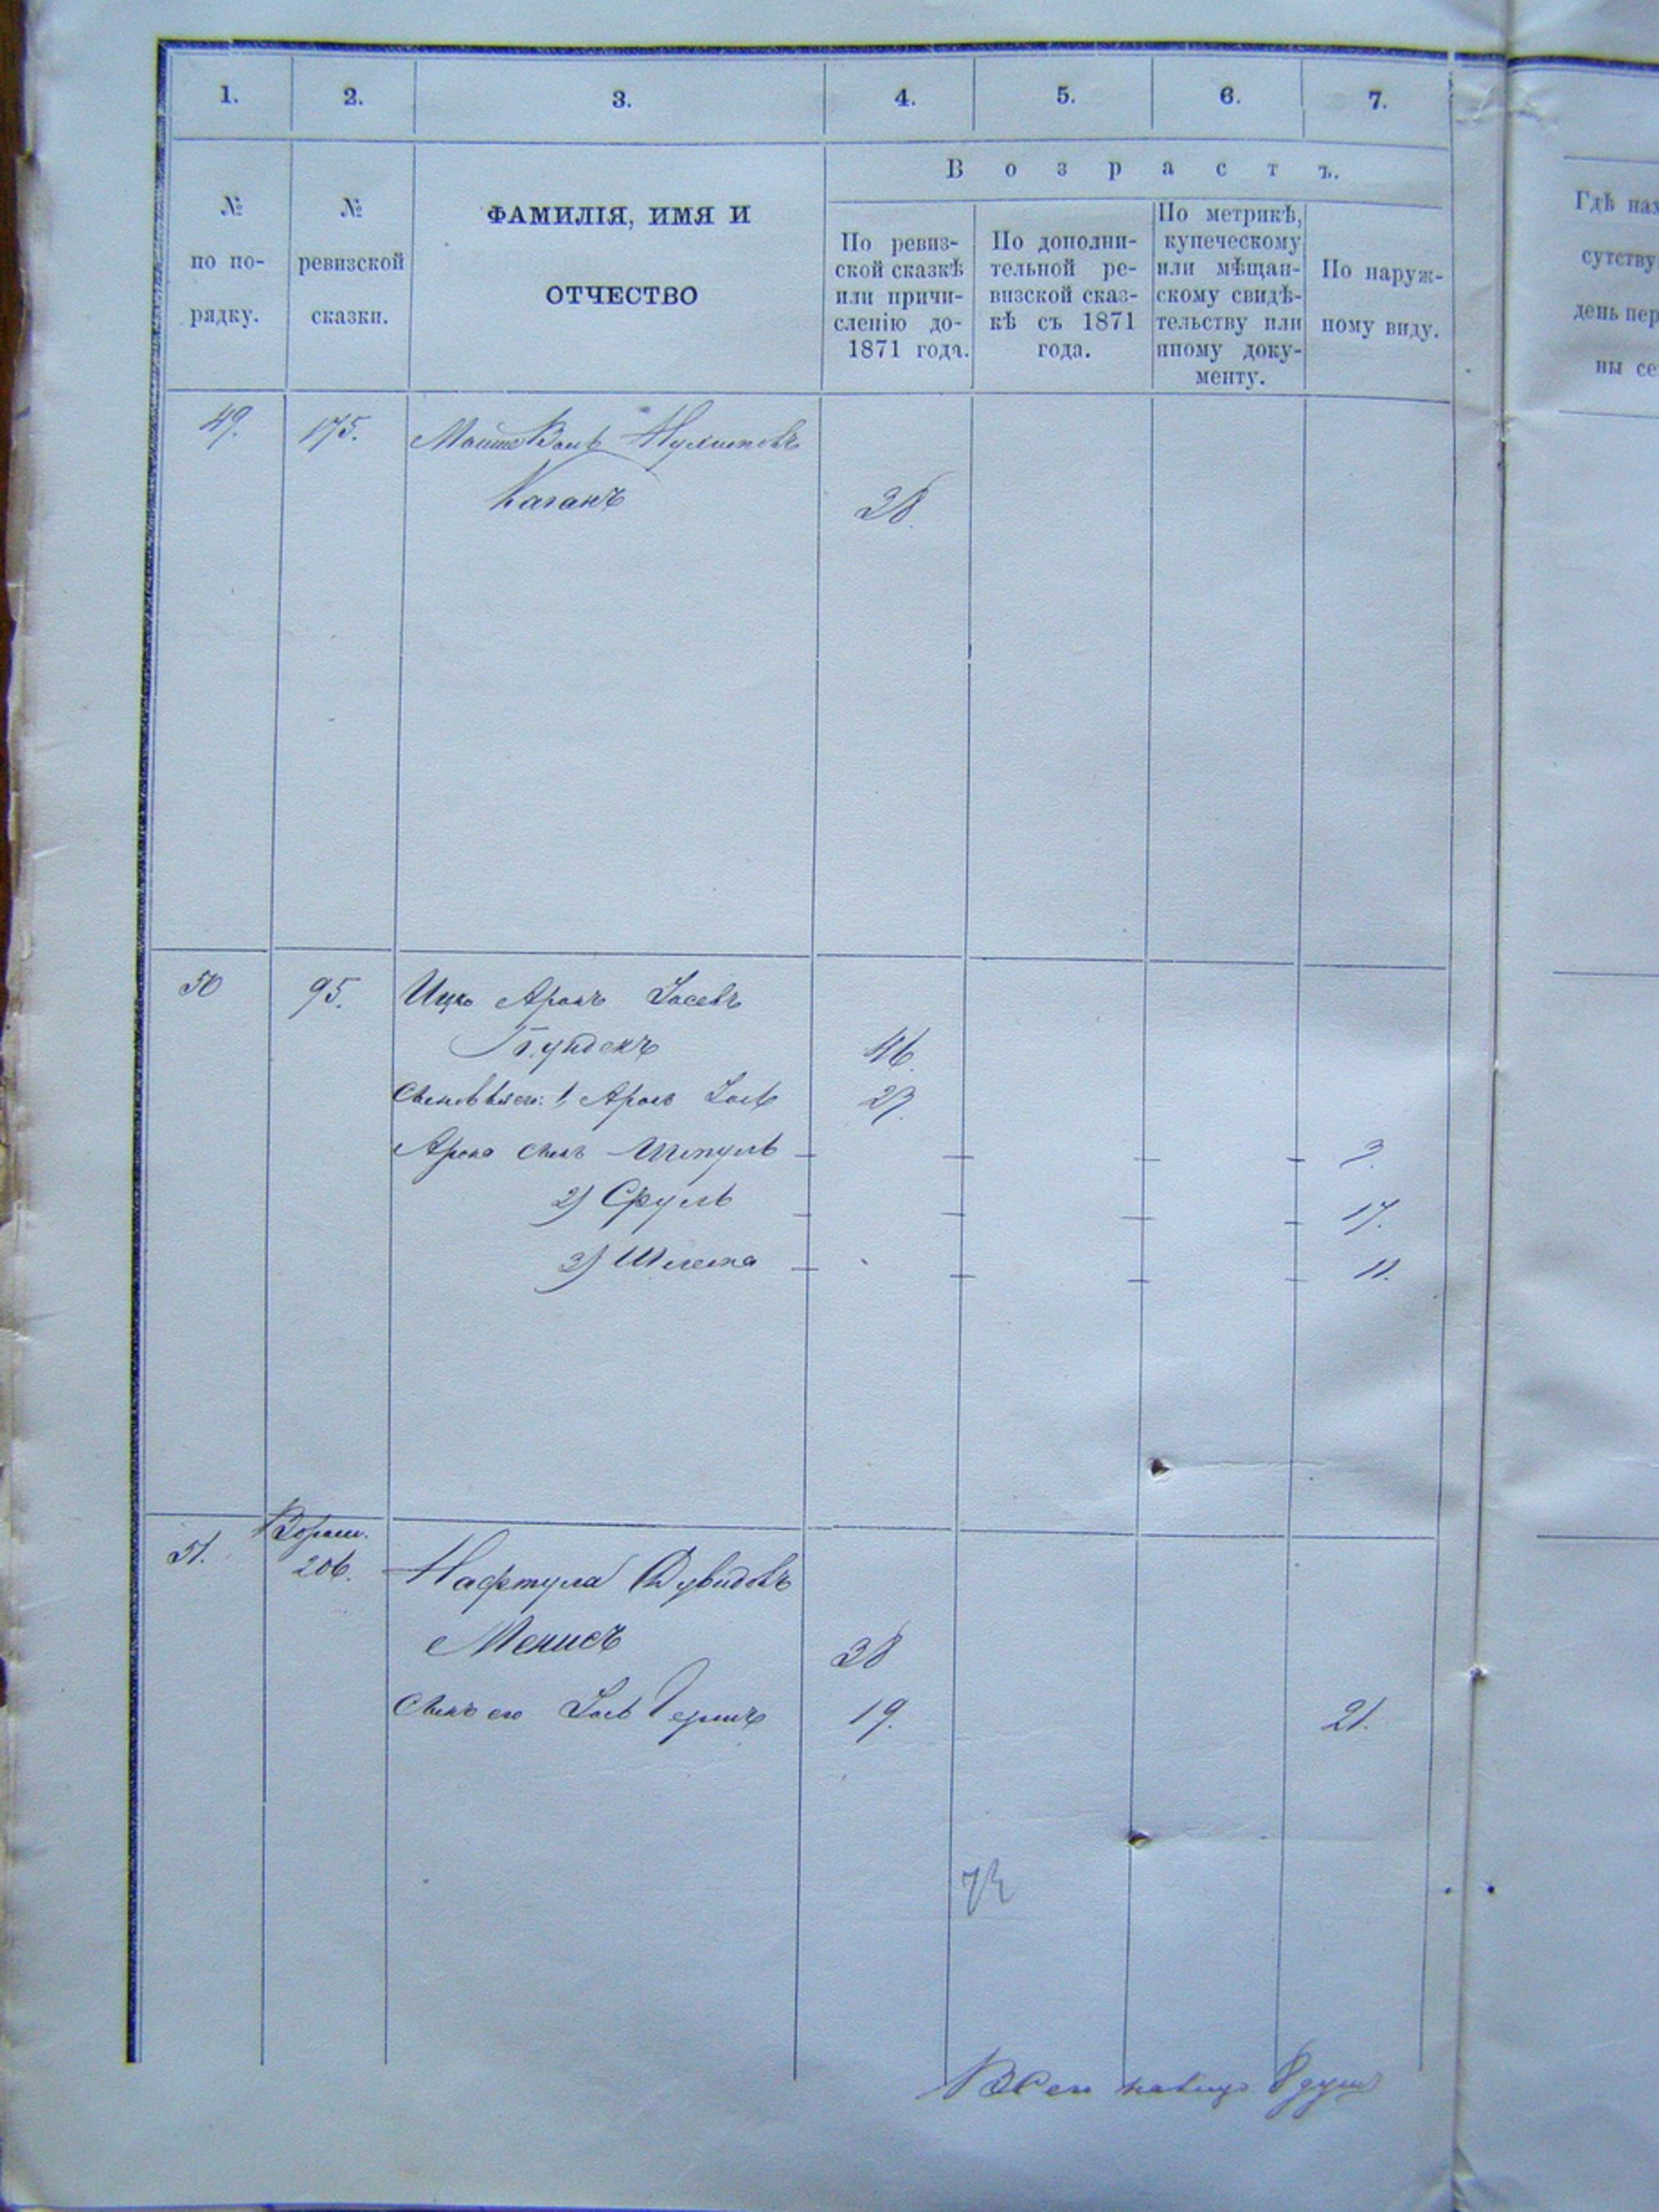 1. 2. 3. 4. 5. 6. 7.
№ по по-рядку.
№ ревизской сказки.
ФАМИЛІЯ, ИМЯ И
ОТЧЕСТВО
Возрастъ.
По ревиз-
ской сказкѣ
или причи-
сленію до-
1871 года.
По дополни-
тельной ре-
визской сказ-
кѣ съ 1871
года.
По метрикѣ,
купеческому
или мѣщан-
скому свидѣ-
тельству или
иному доку-
менту.
По наруж-
ному виду.
Гдѣ нах
сутству
день пер
ны се
49. 175. Мошко Волъ
Каганъ 38.
50 95. Ицко Аронъ Іосевъ
46.
Сыновья его: 1, Аронъ Іось 23.
Арона сынъ Шмуль 3.
2) Сруль 17.
3) Шлема 11.
51. 206. Нафтула Дувидовъ
Менисъ 38
Сынъ его Іось Гершъ 19. 21.
Всего налицо 8 душъ